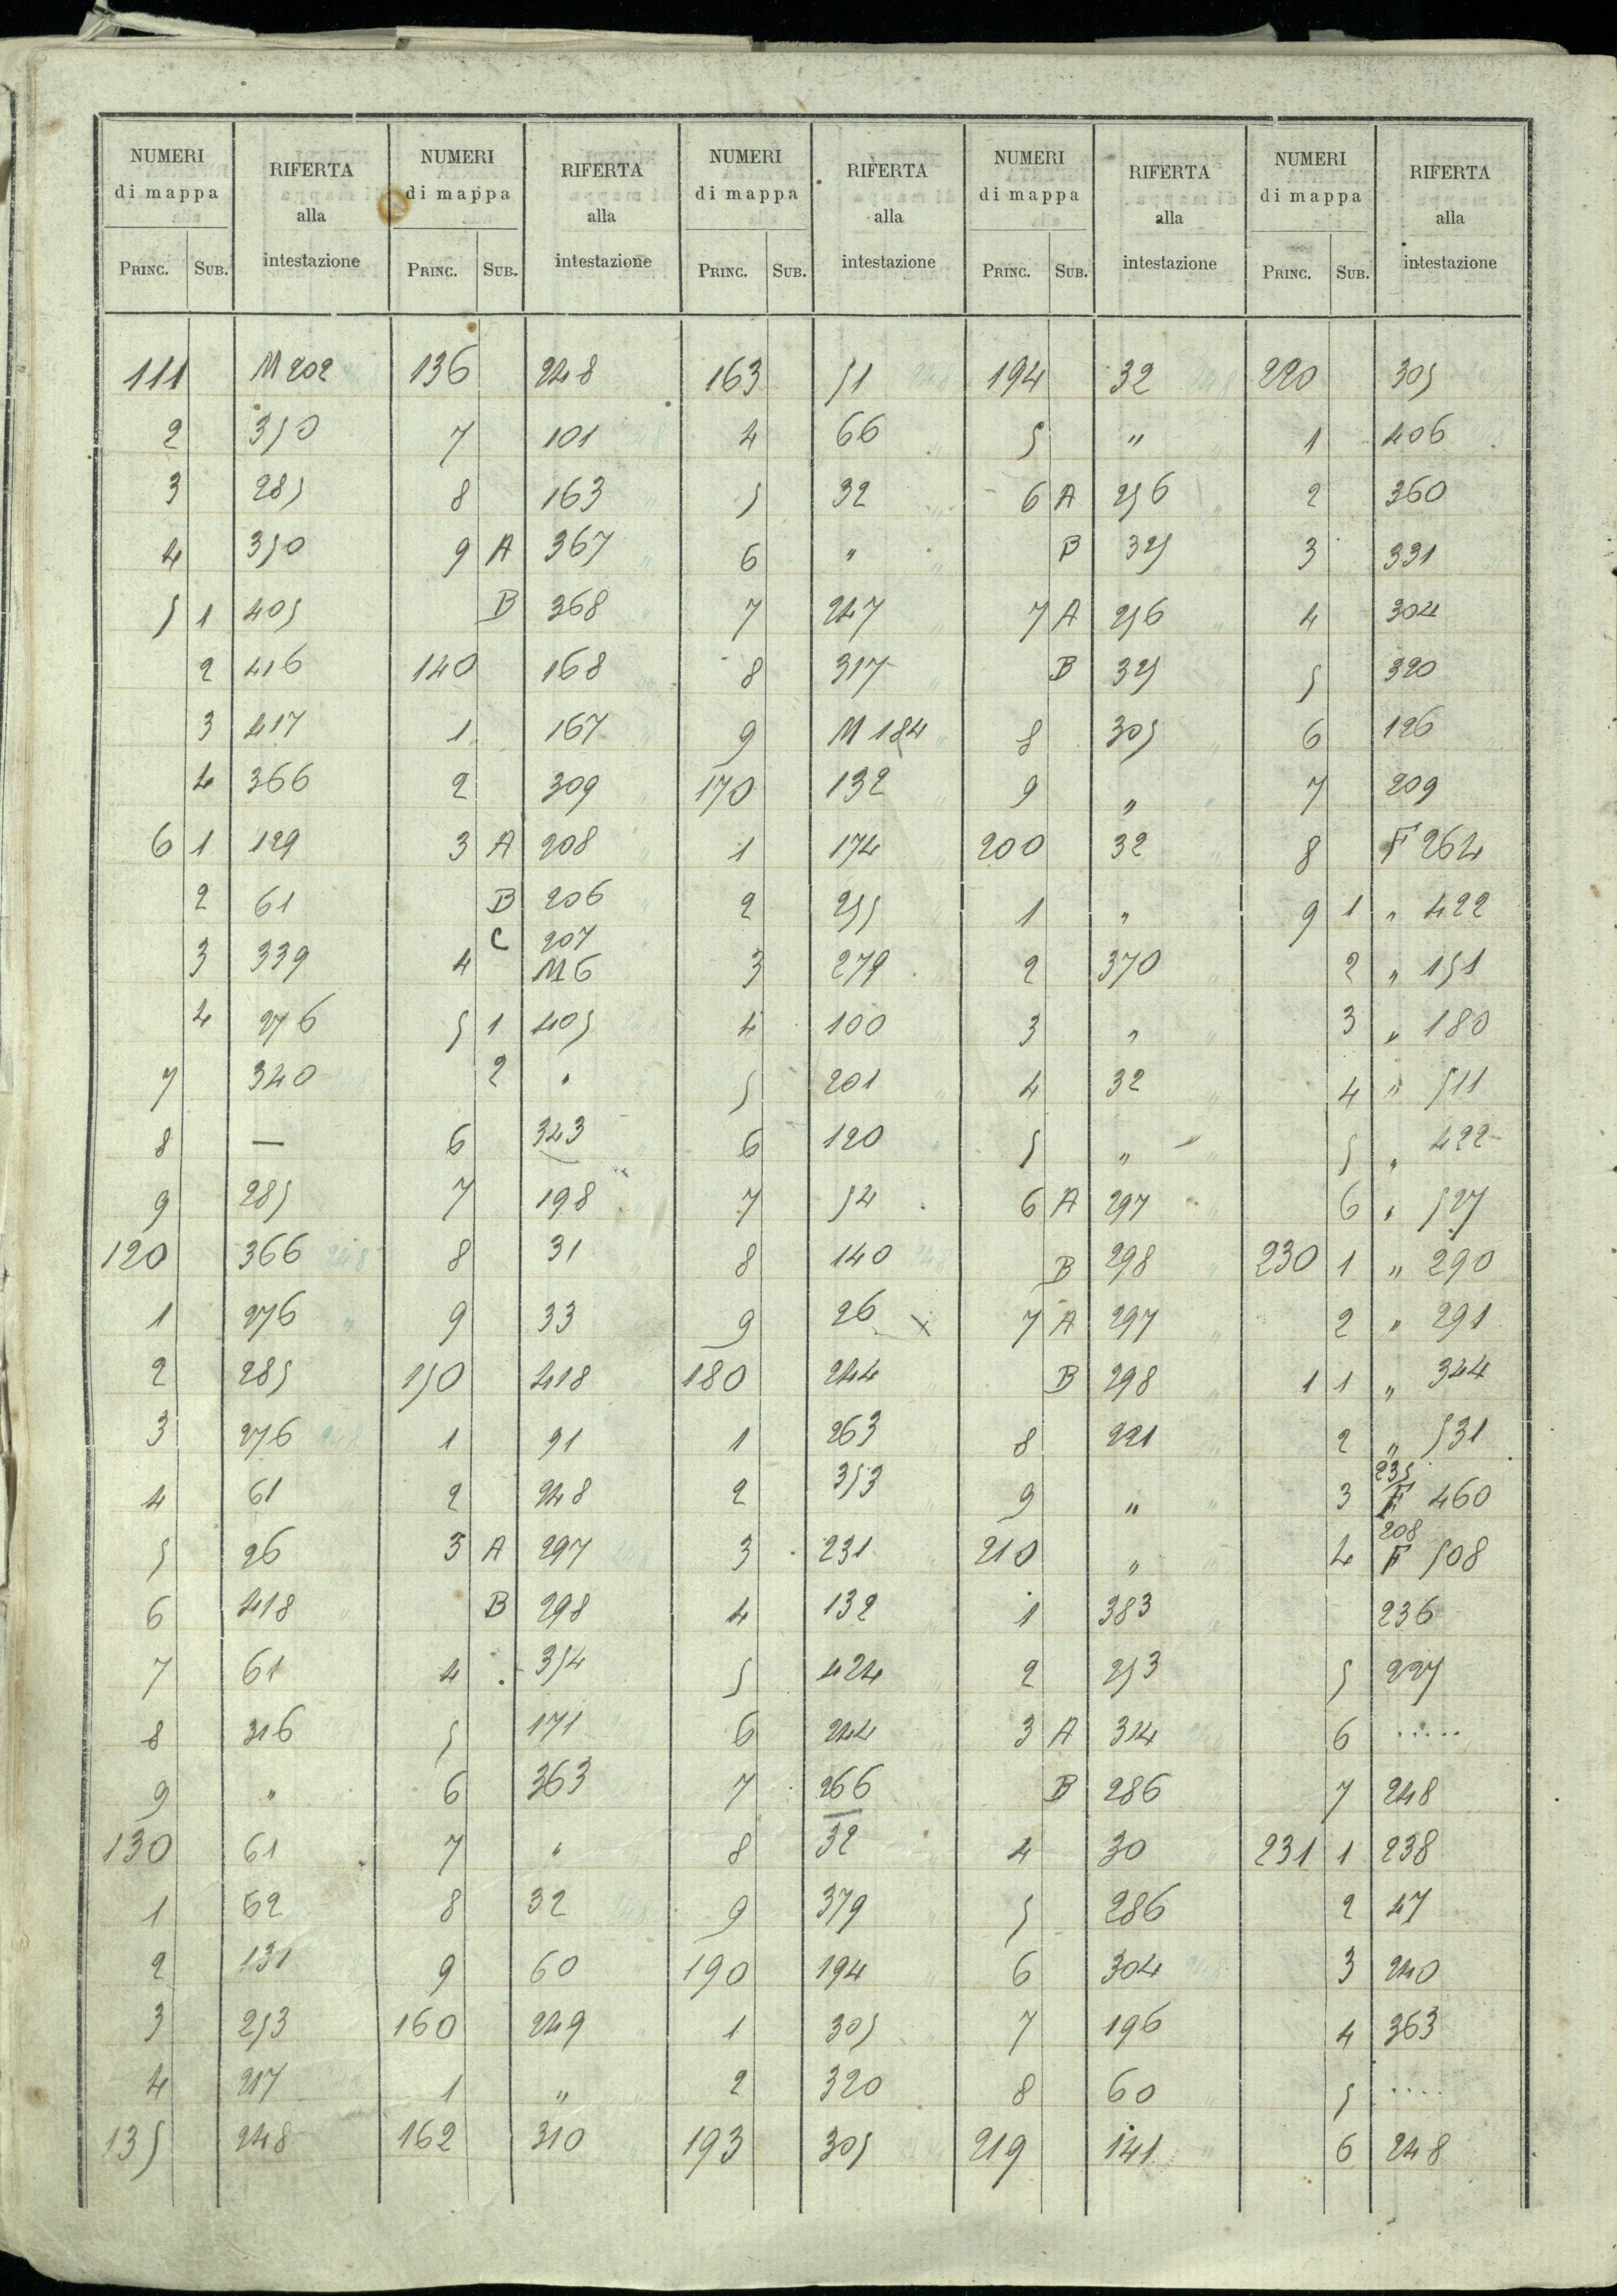 NUMERI di mappa RIFERTA alla intestazione NUMERI di mappa RIFERTA alla intestazione NUMERI di mappa RIFERTA alla intestazione NUMERI di mappa RIFERTA alla intestazione NUMERI di mappa RIFERTA alla intestazione
PRINC. SUB. PRINC. SUB. PRINC. SUB. PRINC. SUB. PRINC. SUB.
111 M 202 136 248 163 51 194 32 220 305
2 350 7 101 4 66 5 " 1 406
3 285 8 163 5 32 6 A 256 2 360
4 350 9 A 367 6 " B 325 3 331
5 1 405 B 368 7 247 7 A 256 4 304
2 416 140 168 8 317 B 325 5 320
3 417 1 167 9 M 184 8 305 6 126
4 366 2 309 170 132 9 " 7 209
6 1 129 3 A 208 1 174 200 32 8 F 264
2 61 B 206 2 255 1 " 9 1 " 422
C 207
3 339 4 M 6 3 279 2 370 2 " 151
4 276 5 1 405 4 100 3 " 3 " 180
7 340 2 " 5 201 4 32 4 " 511
8 — 6 343 6 120 5 " 5 " 422
9 285 7 198 7 54 6 A 297 6 " 527
120 366 8 31 8 140 B 298 230 1 " 290
1 276 9 33 9 26 7 A 297 2 " 291
2 285 150 418 180 244 B 298 1 1 " 344
3 276 1 91 1 263 8 221 2 " 531
235
4 61 2 248 2 353 9 " 3 F 460
208
5 26 3 A 297 3 231 210 " 4 F 508
6 418 B 298 4 132 1 383 236
7 61 4 354 5 424 2 253 5 227
8 316 5 171 6 244 3 A 314 6 .....
9 " 6 363 7 266 B 286 7 248
130 61 7 " 8 32 4 30 231 1 238
1 62 8 32 9 379 5 286 2 47
2 131 9 60 190 194 6 304 3 240
3 253 160 249 1 305 7 196 4 363
4 217 1 " 2 320 8 60 5 ....
135 248 162 310 193 305 219 141 6 248